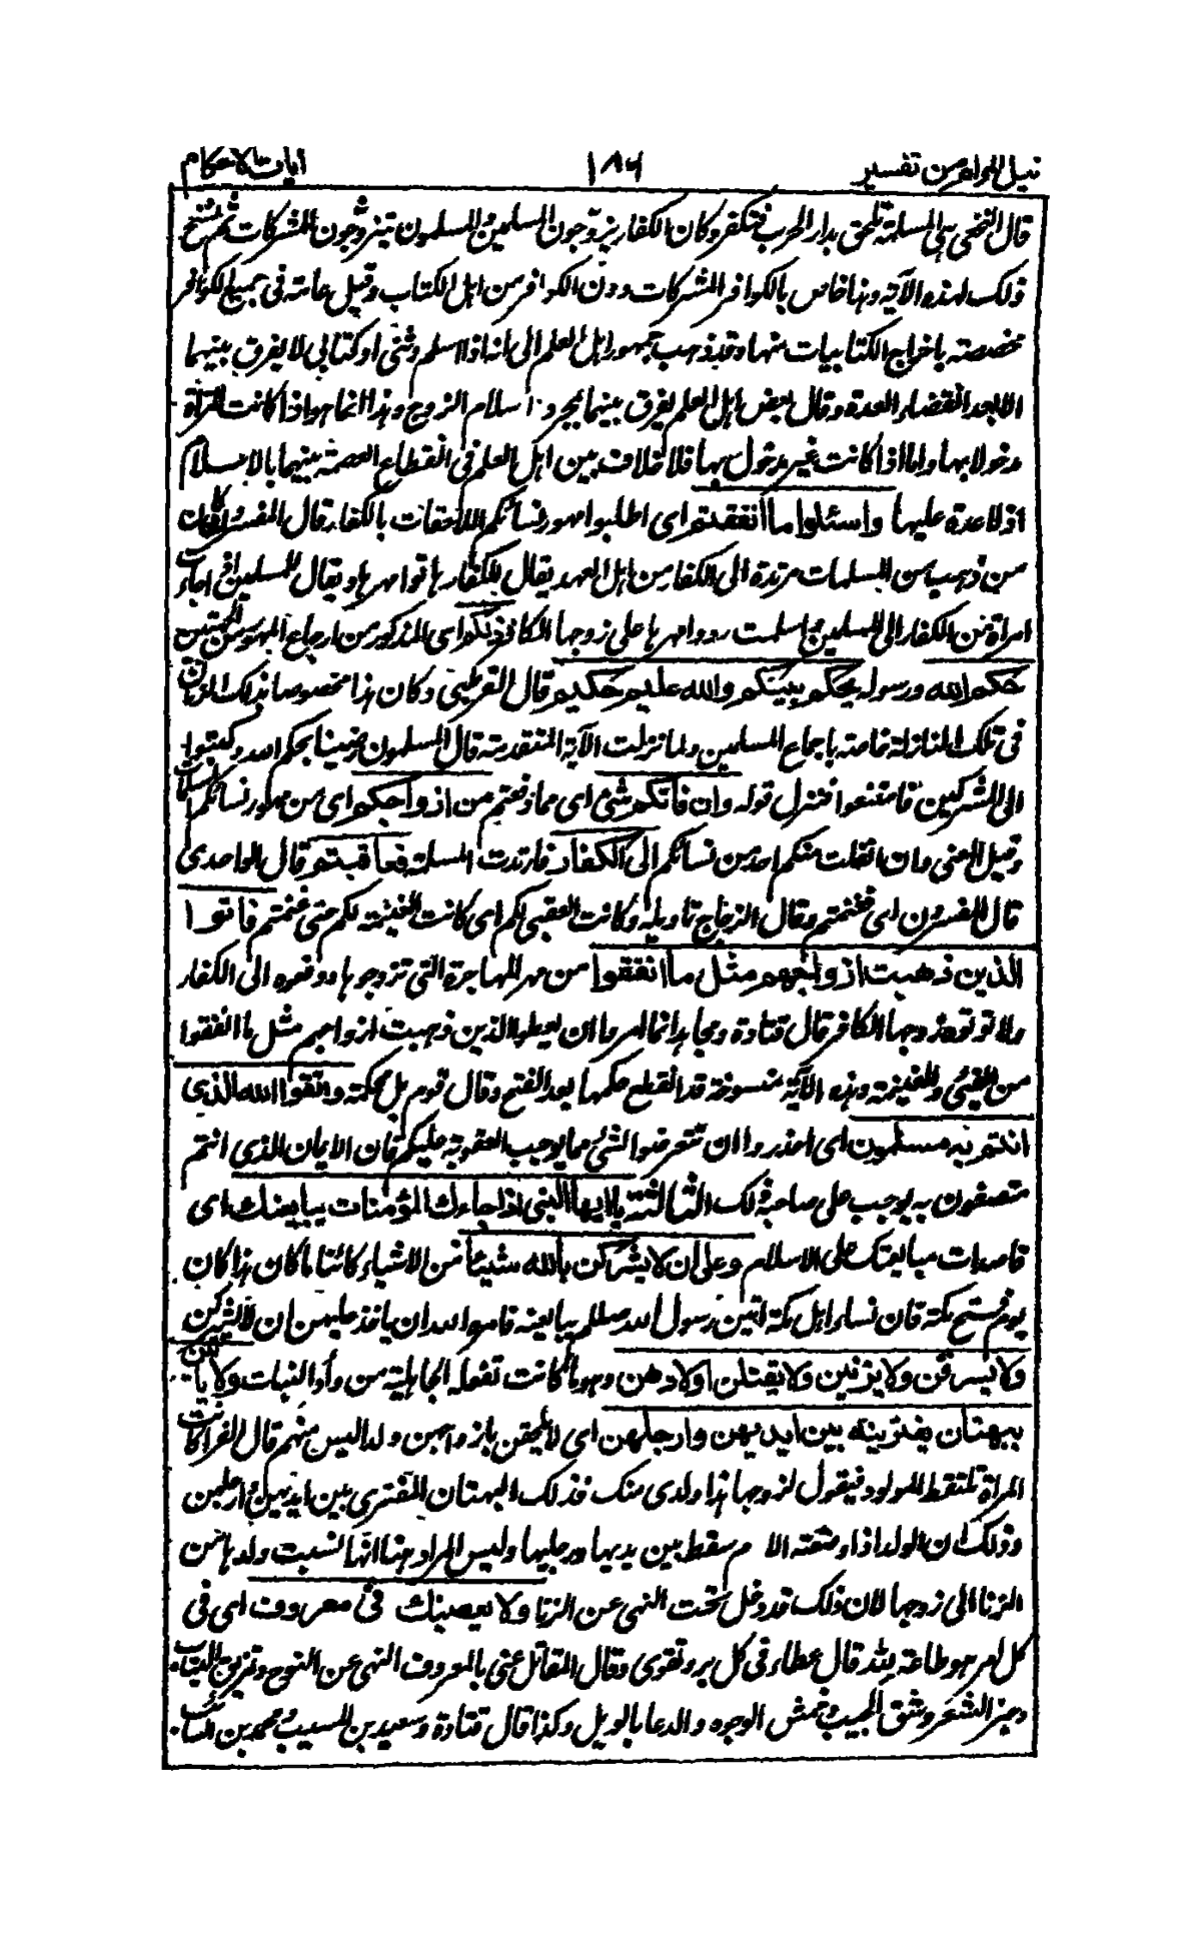 نيل المرام من تفسير ١٨٦ آيات الاحكام
قال النخعي هي المسلمة تلحق بدار الحرب فتكفر وكان الكفار يزوجون المسلمين والمسلمون يتزوجون المشركات ثم نسخ
ذلك بهذه الآية وهذا خاص بالكوافر المشركات دون الكوافر من اهل الكتاب وقيل عامة في جميع الكوافر
مخصصة باخراج الكتابيات منها وقد ذهب جمهور اهل العلم الى انه اذا اسلم وثني او كتابي لا يفرق بينهما
الا بعد انقضاء العدة وقال بعض اهل العلم يفرق بينهما بمجرد اسلام الزوج وهذا انما هو اذا كانت المرأة
مدخولا بها واما اذا كانت غير مدخول بها فلا خلاف بين اهل العلم في انقطاع العصمة بينهما بالاسلام
اذ لا عدة عليها واسئلوا ما أنفقتم اى اطلبوا مهور نسائكم اللاحقات بالكفار قال المفسرون كان
من ذهب من المسلمات مرتدة الى الكفار من اهل العهد يقال للكفار هاتوا مهرها ويقال للمسلمين اذا جاءت
امرأة من الكفار الى المسلمين واسلمت ردوا مهرها على زوجها الكافر ذلكم اى المذكور من ارجاع المهور من الجهتين
حكم الله ورسوله يحكم بينكم والله عليم حكيم قال القرطبي وكان هذا مخصوصا بذلك الزمان
في تلك النازلة خاصة باجماع المسلمين ولما نزلت الآية المتقدمة قال المسلمون رضينا بحكم الله وكتبوا
الى المشركين فامتنعوا فنزل قوله وان فاتكم شئ اى مما دفعتم من ازواجكم اى من مهور نسائكم المسلمات
وقيل المعنى وان انفلت منكم احد من نسائكم الى الكفار فارتدت المسلمة فعاقبتم قال الواحدى
قال المفسرون اى فغنمتم وقال الزجاج تاويله وكانت العقبى لكم اى كانت الغنيمة لكم حتى غنمتم فاتوا
الذين ذهبت ازواجهم مثل ما انفقوا من مهر المهاجرة التي تزوجوها ودفعوه الى الكفار
ولا توتوه زوجها الكافر قال قتادة ومجاهد انما امروا ان يعطوا الذين ذهبت ازواجهم مثل ما انفقوا
من الفيئ والغنيمة وهذه الآية منسوخة قد انقطع حكمها بعد الفتح وقال قوم بل محكمة واتقوا الله الذى
انتم به مسلمون اى احذروا ان تتعرضوا لشئ مما يوجب العقوبة عليكم فان الايمان الذى انتم
متصفون به يوجب على صاحبه ذلك الثالثة يا ايها النبي اذا جاءك المؤمنات يبايعنك اى
قاصدات مبايعتك على الاسلام وعلى ان لا يشركن بالله شيئا من الاشياء كائنا ما كان هذا كان
يوم فتح مكة فان نساء اهل مكة اتين رسول الله صلعم يبايعنه فامره الله ان ياخذ عليهن ان لا يشركن
ولا يسرقن ولا يزنين ولا يقتلن اولادهن وهو ما كانت تفعله الجاهلية من وأد البنات ولا يأتين
ببهتان يفترينه بين ايديهن وارجلهن اى لا يلحقن بازواجهن ولدا ليس منهم قال الفراء كانت
المرأة تلتقط المولود فيقول لزوجها هذا ولدى منك فذلك البهتان المفترى بين ايديهن وارجلهن
وذلك ان الولد اذا وضعته الام سقط بين يديها ورجليها وليس المراد هنا انها نسبت ولدها من
الزنا الى زوجها لان ذلك قد دخل تحت النهى عن الزنا ولا يعصينك في معروف اى فى
كل امر هو طاعة لله قال عطاء فى كل بر وتقوى وقال المقاتل عنى بالمعروف النهى عن النوح وتمزيق الثياب
وجز الشعر وشق الجيب وخمش الوجوه والدعا بالويل وكذا قال قتادة وسعيد بن المسيب ومحمد بن السائب